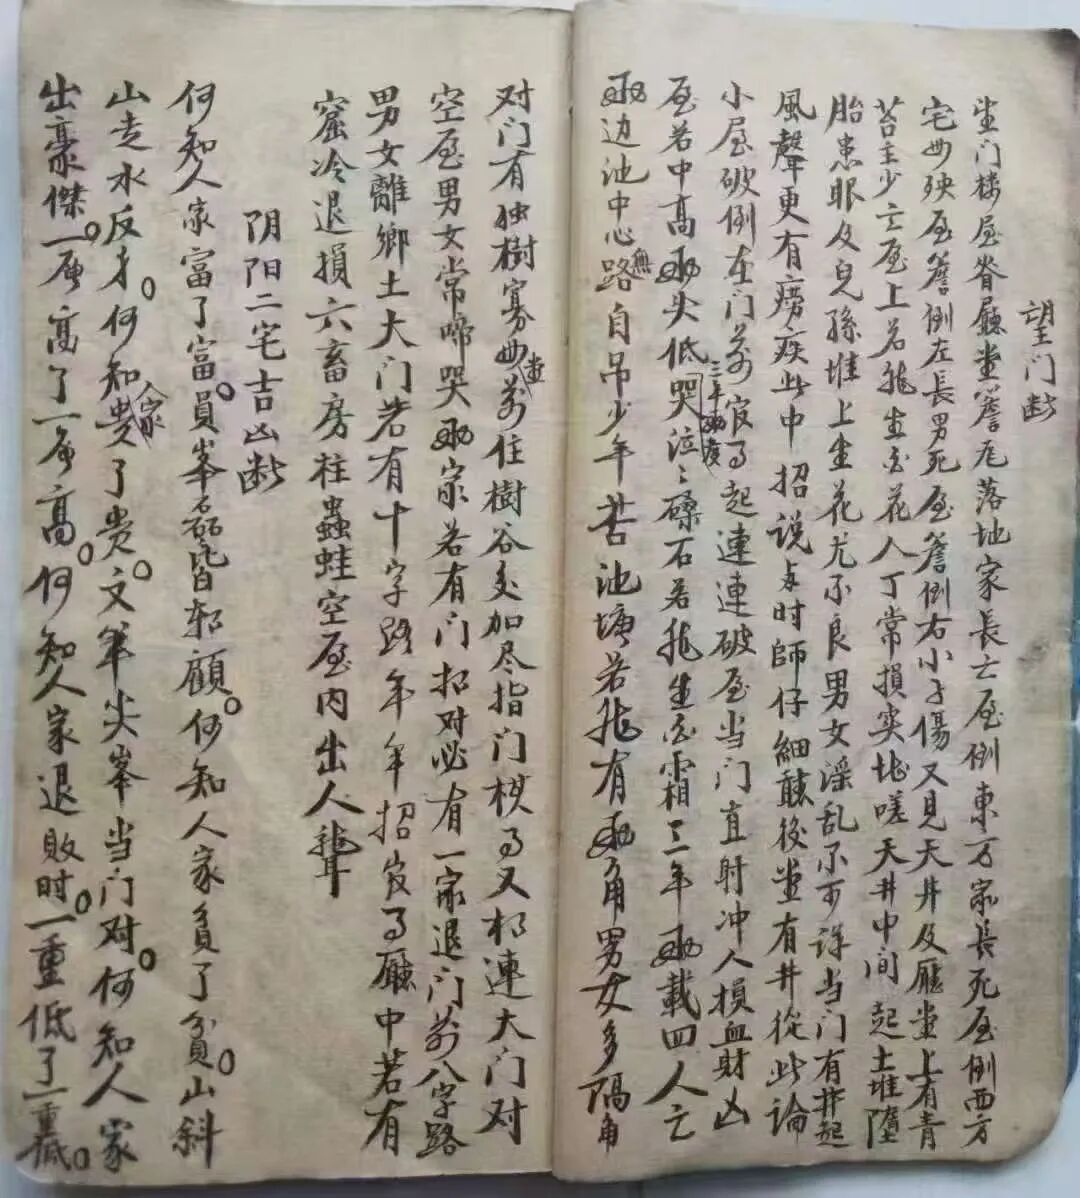 望门断
坐门楼屋脊廳堂簷尾落地家長亡屋倒東方家長死屋倒西方
宅母殃屋簷倒左長男死屋簷倒右小子傷又見天井及廳堂上有青
苔主少亡屋上若生白花人丁常損实堪嗟天井中间起土堆墮
胎患眼及兒孫堆上生花尤不良男女淫乱不可詳当门有井起
風聲更有痨疾此中招説与时師仔細聽後堂有井從此論
小屋破倒在门前官司起連連破屋当门直射冲人損血財凶
屋若中高两头低哭泣三年两度磉石若生白霜三年两載四人亡
两边池中心無路自吊少年苦池塘若有两角男女多隔角
对门有独樹寡母堂前住樹谷交加尽指门横司又相連大门对
空屋男女常啼哭两家若有门招对必有一家退门前八字路
男女離鄉土大门若有十字路年年招官司廳中若有
窟冷退損六畜房柱蟲蛀空屋内出人聾
阴阳二宅吉凶断
何知人家富了富。員峯磊磊皆朝顧。何知人家貧了貧。山斜
山走水反身。何知人家贵了贵。文筆尖峯当门对。何知人家
出豪傑。一層高了一層高。何知人家退敗时。一重低了一重低。